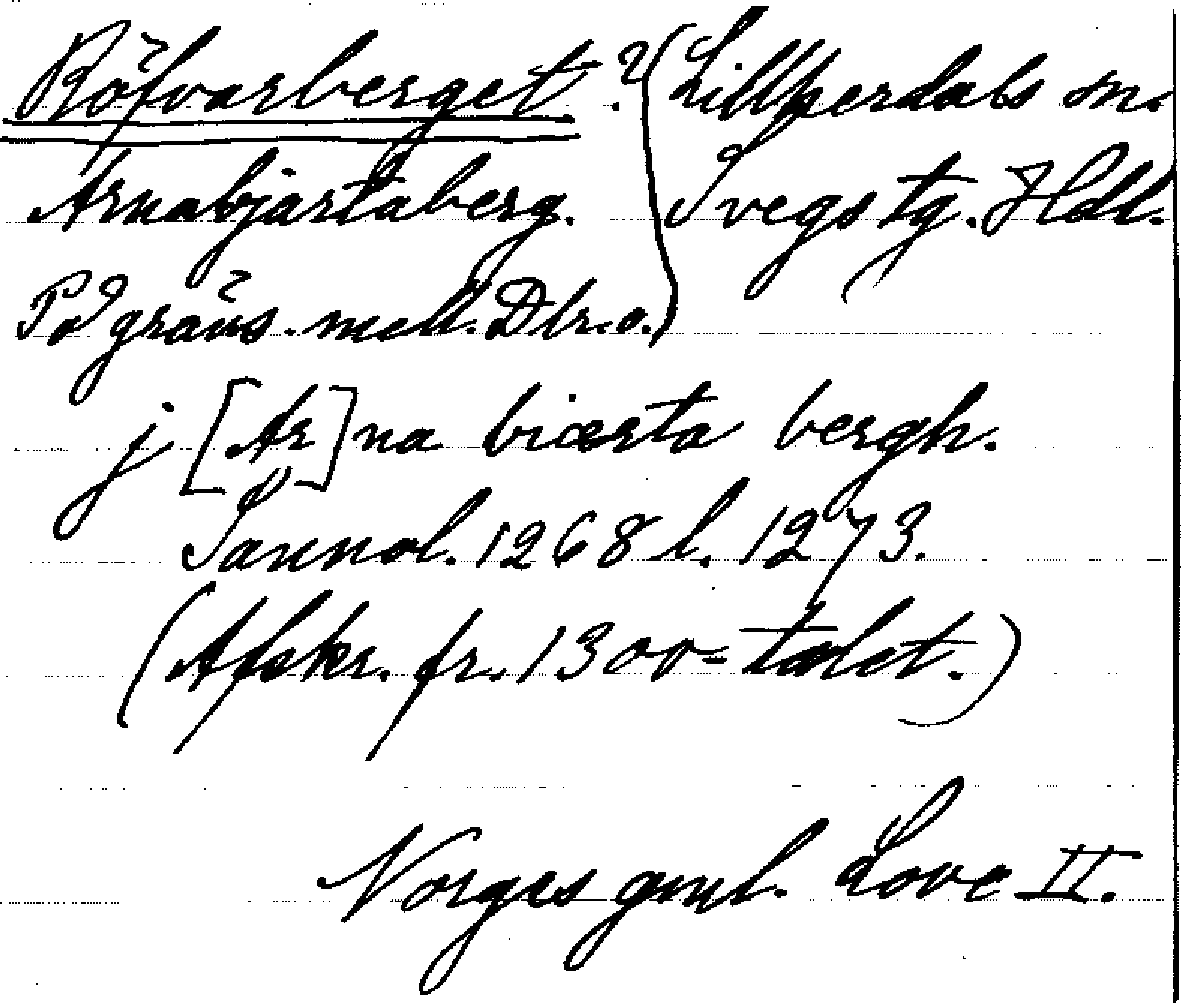 Röfvarberget ? (Lillherdals sn.
Arnabjartaberg. Svegs tg. Hdl.
På gräns. mell. Dlr. o.)
j [Ar] na biærta bergh.
Jannal. 1268 l. 1273.
(Afskr. fr. 1300-talet.)
Norges gml. Love II.